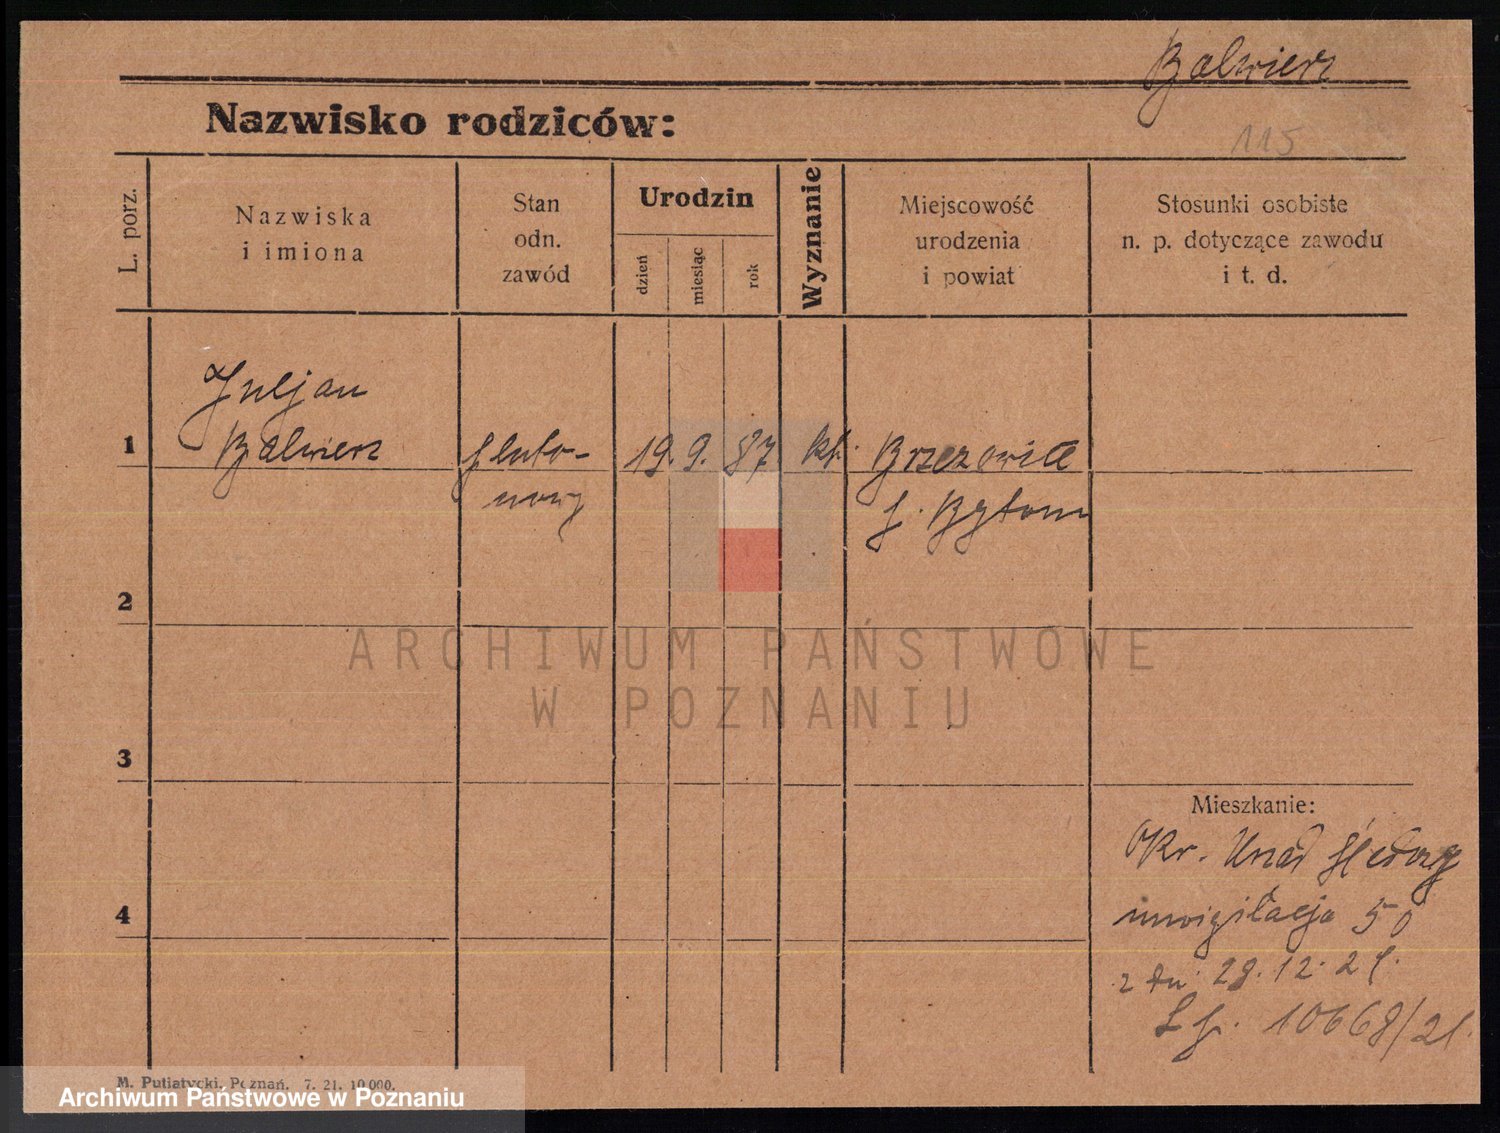 Balwierz
Nazwisko rodziców:
115
L. porz.
Nazwiska
i imiona
Stan
odn.
zawód
Urodzin
dzień
miesiąc
rok
Wyznanie
Miejscowość
urodzenia
i powiat
Stosunki osobiste
n. p. dotyczące zawodu
i t. d.
Juljan
1 Balwierz pluto- 19. 9. 87 kt. Brzezowice
nowy p. Bytom
2
3
4
Mieszkanie:
Okr. Urząd śledczy
inwigilacja 50
z dn. 28.12.21.
L. 10668/21.
ARCHIWUM PAŃSTWOWE
W POZNANIU
M. Putiatycki, Poznań. 7. 21. 10 000.
Archiwum Państwowe w Poznaniu